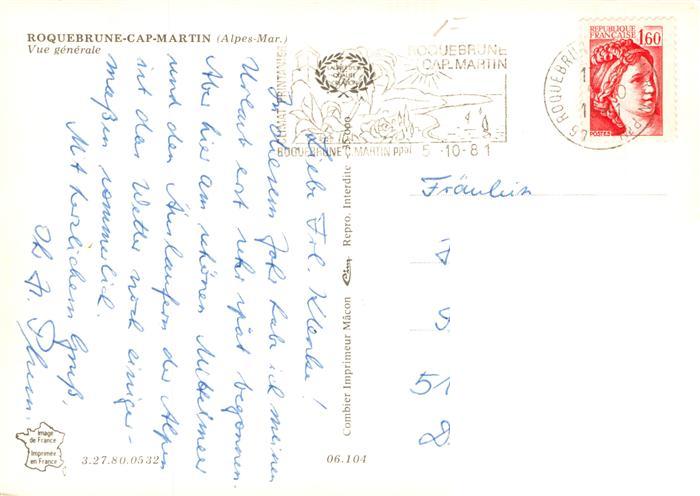 ROQUEBRUNE-CAP-MARTIN (Alpes-Mar.)
Vue générale
1-
CLIMAT PRINTANIER
ROQUEBRUNE
CAP-MARTIN
ROQUEBRUNE C. MARTIN PPAL
5-10-81
REPUBLIQUE FRANÇAISE
1,60
POSTES
06 ROQUEBRUNE
Liebe Frl. Klenke!
In diesem Jahr habe ich meinen
Urlaub erst sehr spät begonnen.
Aber hier am schönen Mittelmeer
und den Ausläufern der Alpen
ist das Wetter noch einiger-
maßen sommerlich.
Mit herzlichem Gruß,
Ihr H.
Fräulein
J
5
51
D.
Combier Imprimeur Mâcon Cim Repro. Interdite
Image
de France
Imprimée
en France
3.27.80.0532
06.104